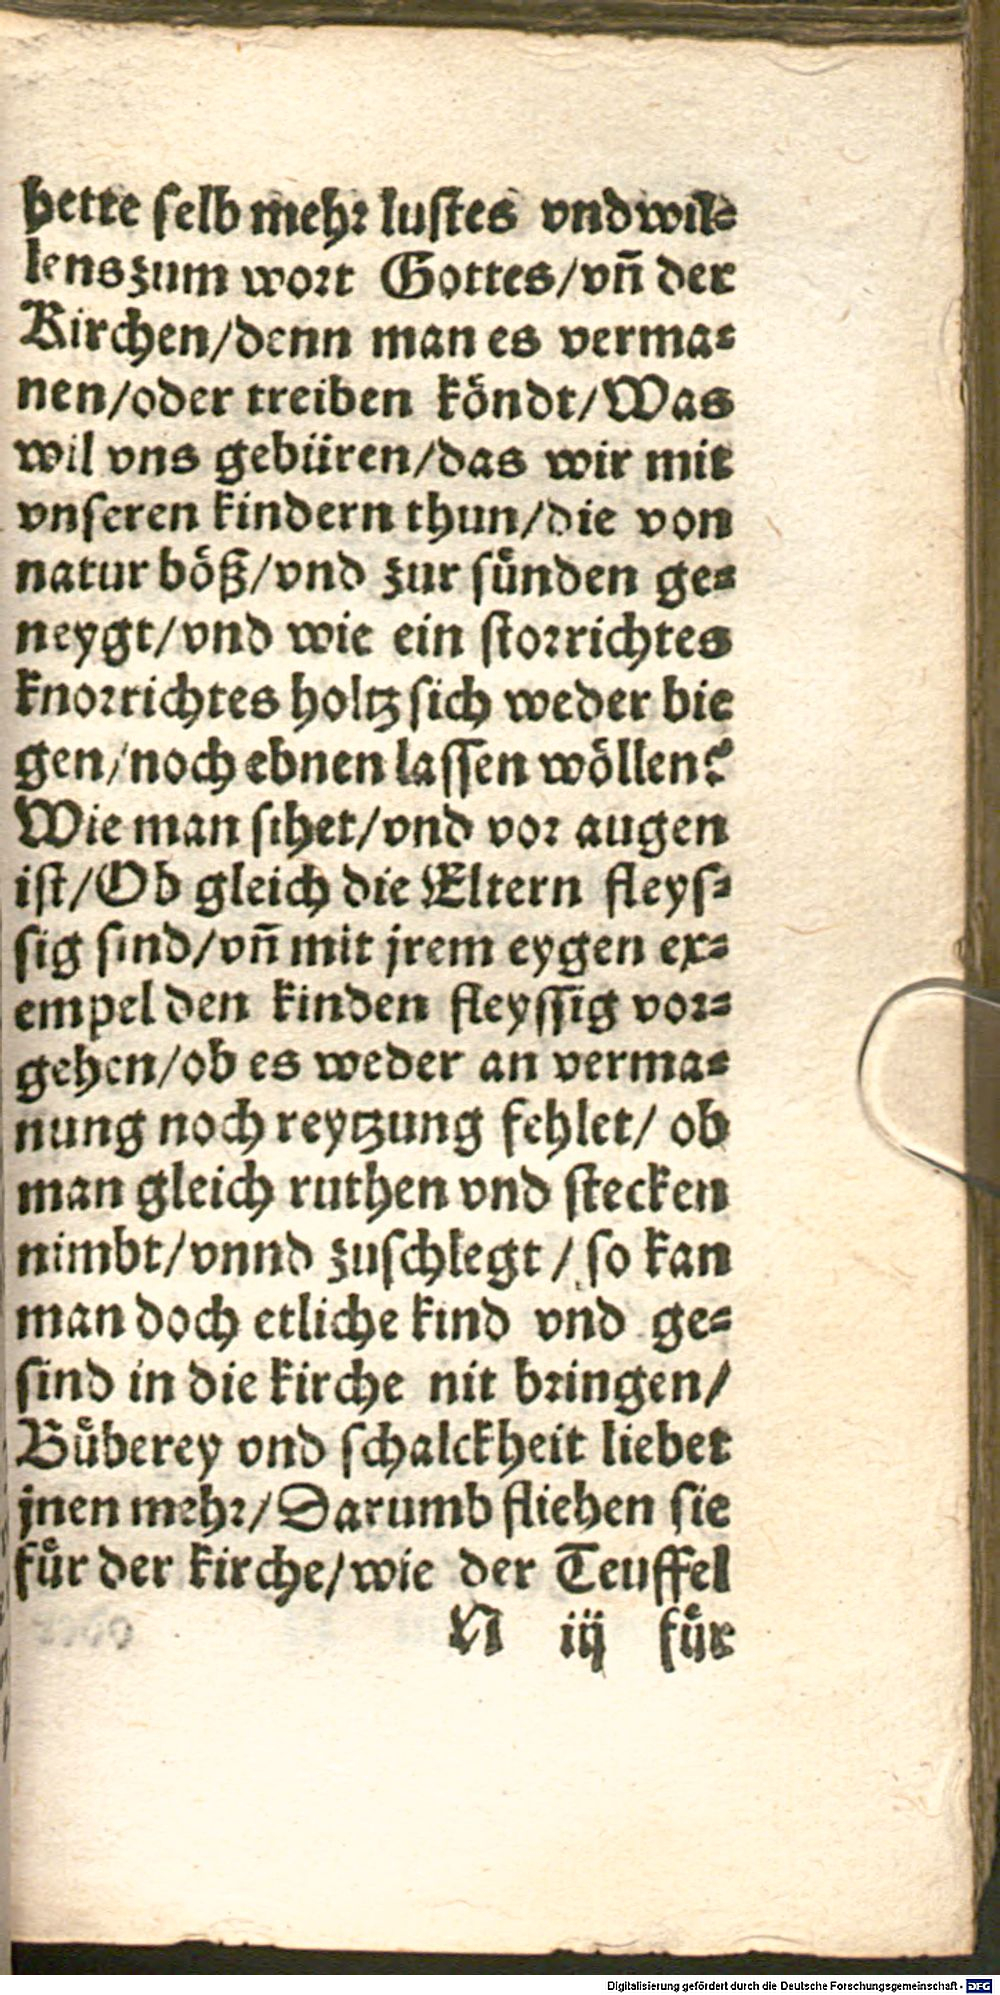 hette ſelb mehr luſtes vnd wil⸗
lens zum wort Gottes/vñ der
Kirchen/denn man es verma⸗
nen/oder treiben koͤndt/Was
wil vns gebüren/das wir mit
vnſeren kindern thun/die von
natur boͤß/vnd zur ſuͤnden ge⸗
neygt/vnd wie ein ſtorrichtes
knorrichtes holtz ſich weder bie
gen/noch ebnen laſſen woͤllen?
Wie man ſihet/vnd vor augen
iſt/Ob gleich die Eltern fleyſ⸗
ſig ſind/vñ mit jrem eygen ex⸗
empel den kinden fleyſſig vor⸗
gehen/ob es weder an verma⸗
nung noch reytzung fehlet/ ob
man gleich ruthen vnd ſtecken
nimbt/vnnd zuſchlegt / ſo kan
man doch etliche kind vnd ge⸗
ſind in die kirche nit bringen/
Buͤberey vnd ſchalckheit liebet
jnen mehr/Darumb fliehen ſie
fuͤr der kirche/wie der Teuffel
N iij fuͤr
Digitalisierung gefördert durch die Deutsche Forschungsgemeinschaft - DFG